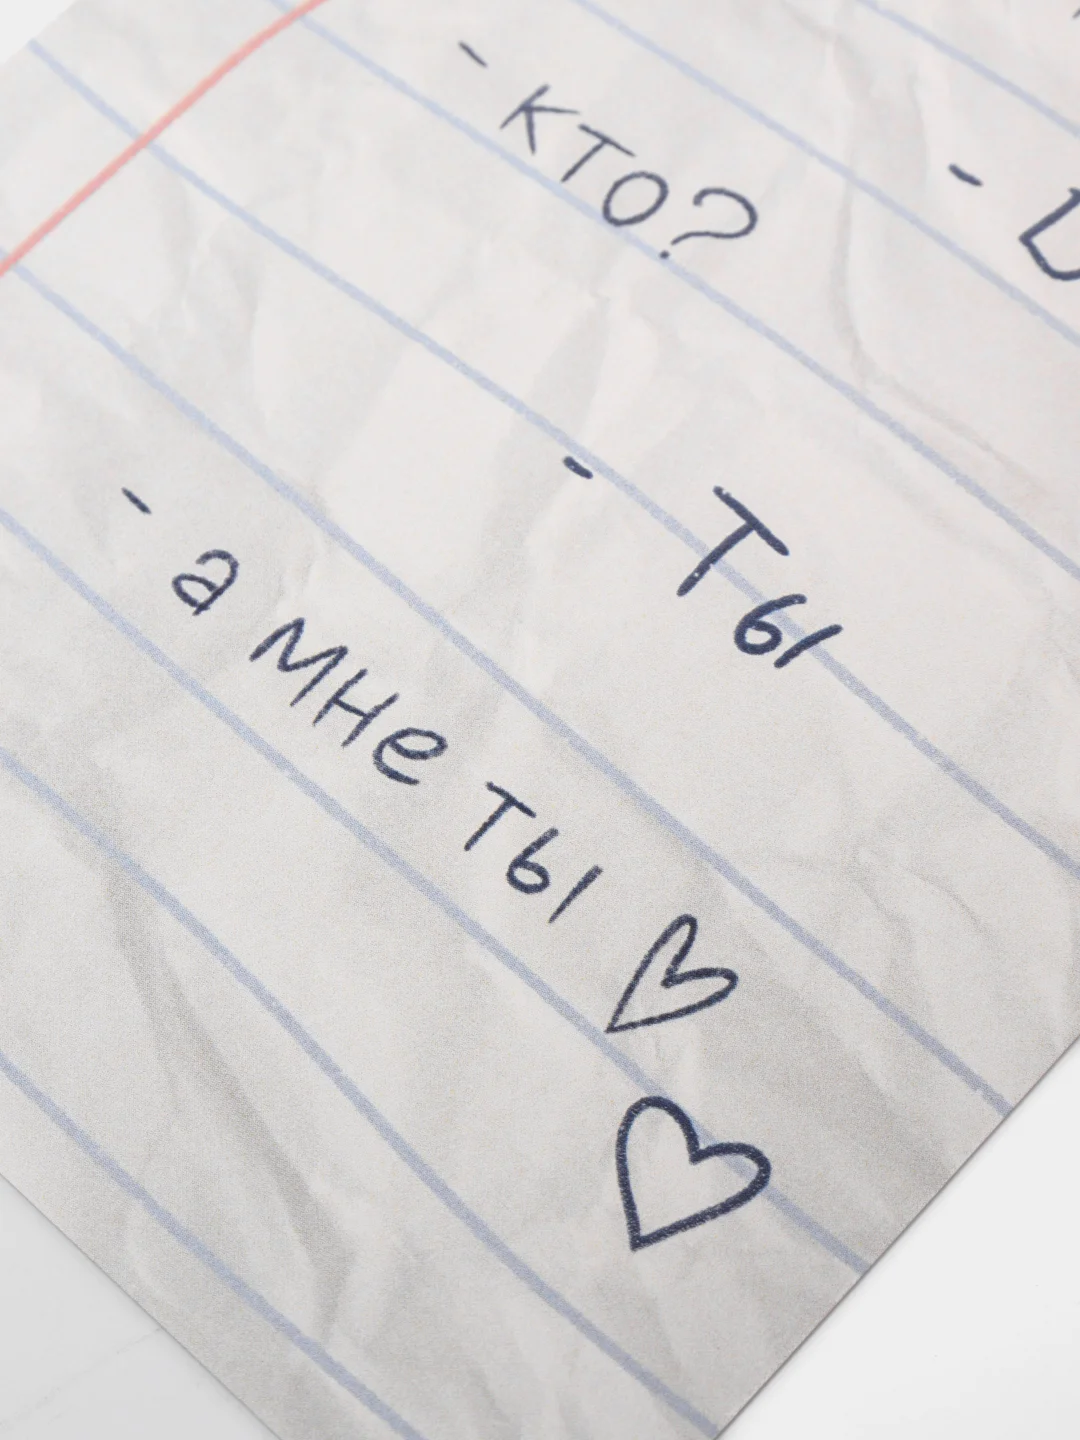 - кто?
- Ты
- а мне ты ♡
♡